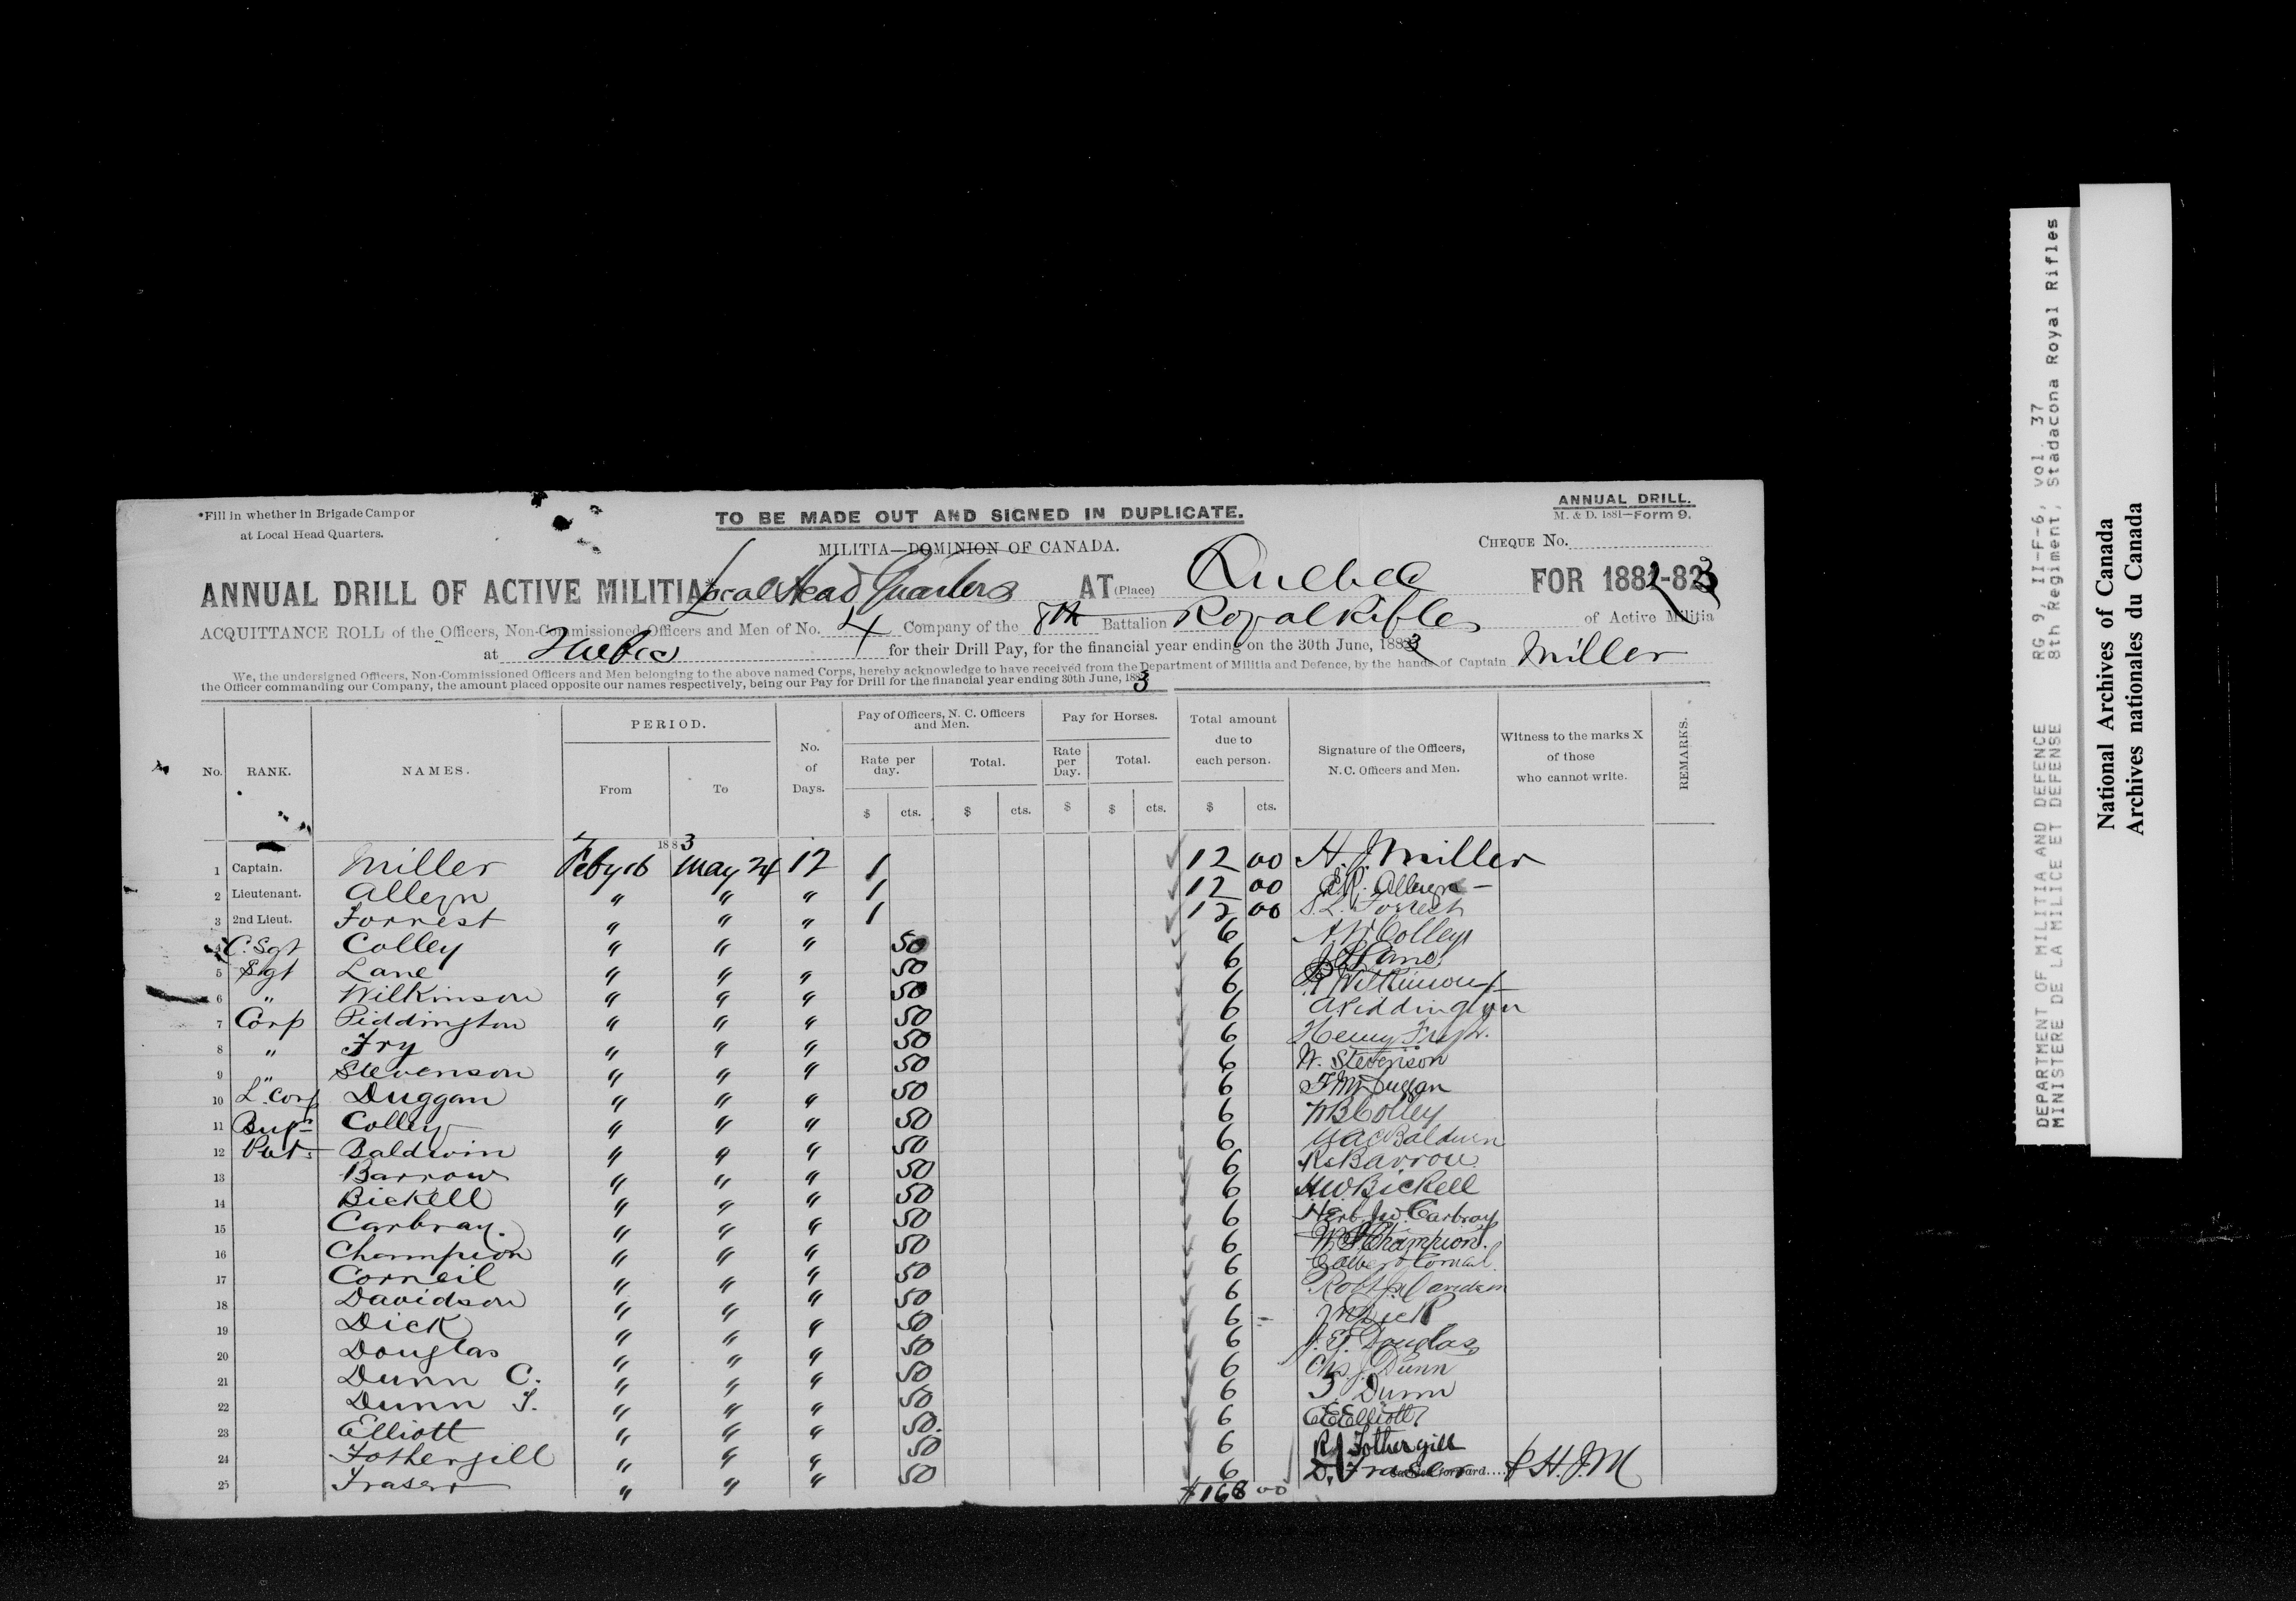 *Fill in whether in Brigade Camp or
at Local Head Quarters.
TO BE MADE OUT AND SIGNED IN DUPLICATE.
ANNUAL DRILL.
M. & D. 1881—Form 9.
MILITIA—DOMINION OF CANADA.
CHEQUE No.
ANNUAL DRILL OF ACTIVE MILITIA* Local Head Quarters AT (Place) Quebec FOR 1882-83
ACQUITTANCE ROLL of the Officers, Non-Commissioned Officers and Men of No. 4 Company of the 8th Battalion Royal Rifles of Active Militia
at Quebec for their Drill Pay, for the financial year ending on the 30th June, 1883 by the hands of Captain Miller
We, the undersigned Officers, Non-Commissioned Officers and Men belonging to the above named Corps, hereby acknowledge to have received from the Department of Militia and Defence,
the Officer commanding our Company, the amount placed opposite our names respectively, being our Pay for Drill for the financial year ending 30th June, 1883
No. RANK. NAMES. PERIOD. From To No. of Days. Pay of Officers, N. C. Officers and Men. Rate per day. Total. Pay for Horses. Rate per Day. Total. Total amount due to each person. Signature of the Officers, N.C. Officers and Men. Witness to the marks X of those who cannot write. REMARKS.
$ cts. $ cts. $ $ cts. $ cts.
1883
1 Captain. Miller Feby 16 May 24 12 1 12 00 H. J. Miller
2 Lieutenant. Alleyn " " " 1 12 00 Alleyn
3 2nd Lieut. Forrest " " " 1 12 00 S. L. Forrest
4 C. Sgt Colley " " " 50 6 Colley
5 Sgt Lane " " " 50 6 Lane
6 " Wilkinson " " " 50 6 Wilkinson
7 Corp Piddington " " " 50 6 A Piddington
8 " Fry " " " 50 6 Henry Fry Jr.
9 " Stevenson " " " 50 6 W. Stevenson
10 L. Corp Duggan " " " 50 6 Duggan
11 Bugr Colley " " " 50 6 W B Colley
12 Pvt. Baldwin " " " 50 6 Baldwin
13 Barrow " " " 50 6 Barrow
14 Bickell " " " 50 6 H.W. Bickell
15 Carbray. " " " 50 6 Carbray
16 Champion " " " 50 6 Champion.
17 Corneil " " " 50 6 Corneil.
18 Davidson " " " 50 6 Robt Davidson
19 Dick " " " 50 6 Dick
20 Douglas " " " 50 6 Douglas
21 Dunn C. " " " 50 6 Chs. J. Dunn
22 Dunn T. " " " 50 6 T Dunn
23 Elliott " " " 50. 6 Elliott
24 Fothergill " " " 50 6 Fothergill
25 Fraser " " " 50 6 D. Fraser forward.... H.J.M
$168 00
DEPARTMENT OF MILITIA AND DEFENCE RG 9, II-F-6, vol. 37
MINISTERE DE LA MILICE ET DEFENSE 8th Regiment, Stadacona Royal Rifles
National Archives of Canada
Archives nationales du Canada